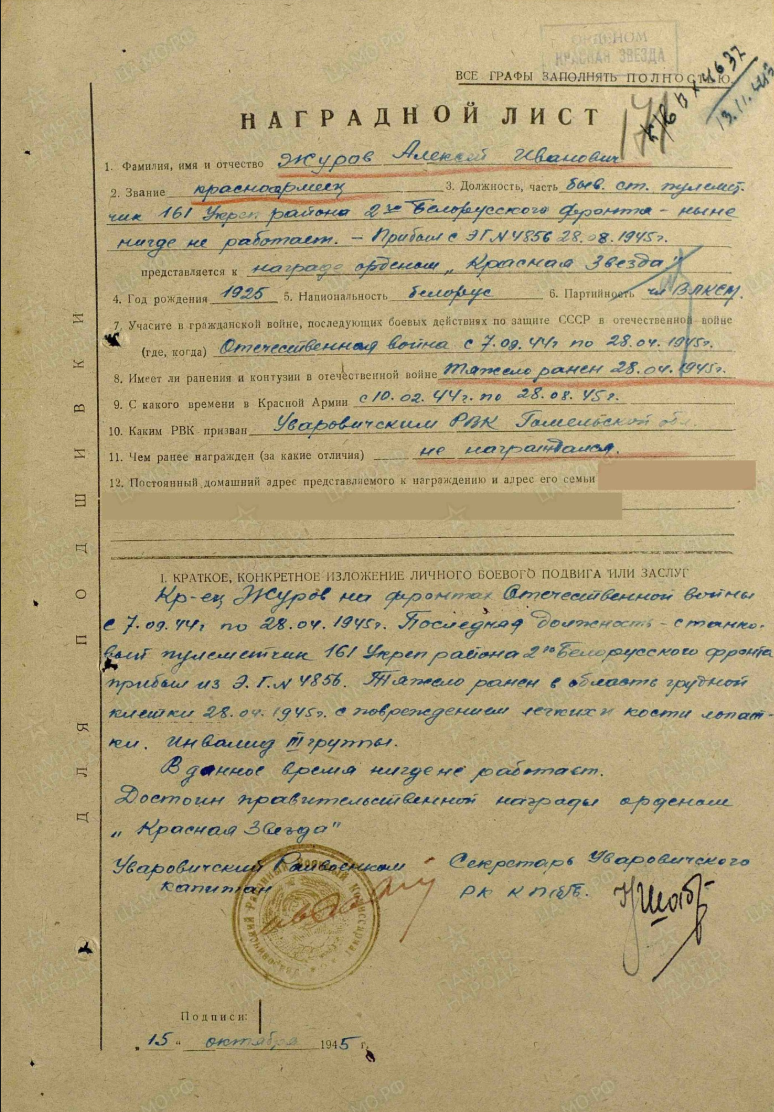 ОРДЕНОМ
КРАСНАЯ ЗВЕЗДА
ВСЕ ГРАФЫ ЗАПОЛНЯТЬ ПОЛНОСТЬЮ
13.11.
НАГРАДНОЙ ЛИСТ
1. Фамилия, имя и отчество Журов Алексей Иванович
2. Звание красноармеец 3. Должность, часть быв. ст. пулемет-
чик 161 Укреп района 2го Белорусского фронта – ныне
нигде не работает. – Прибыл с ЭГ N 4856 28.08.1945г.
представляется к награде орденом „Красная Звезда"
4. Год рождения 1925 5. Национальность белорус 6. Партийность чл ВЛКСМ.
7. Участие в гражданской войне, последующих боевых действиях по защите СССР в отечественной войне
(где, когда) Отечественная война с 7.09.44г по 28.04.1945г.
8. Имеет ли ранения и контузии в отечественной войне Тяжело ранен 28.04.1945г.
9. С какого времени в Красной Армии с 10.02.44г. по 28.08.45г.
10. Каким РВК призван Уваровичским РВК Гомельской обл.
11. Чем ранее награжден (за какие отличия) не награждался.
12. Постоянный домашний адрес представляемого к награждению и адрес его семьи
ДЛЯ ПОДШИВКИ
I. КРАТКОЕ, КОНКРЕТНОЕ ИЗЛОЖЕНИЕ ЛИЧНОГО БОЕВОГО ПОДВИГА ИЛИ ЗАСЛУГ
Кр-ец Журов на фронтах Отечественной войны
с 7.09.44г по 28.04.1945г. Последняя должность – станко-
вый пулеметчик 161 Укреп района 2го Белорусского фронта
прибыл из Э.Г. N 4856. Тяжело ранен в область грудной
клетки 28.04.1945г. с повреждением легких и кости лопат-
ки. Инвалид III группы.
В данное время нигде не работает.
Достоин правительственной награды орденом
„Красная Звезда"
Уваровичский Райвоенком
капитан
Секретарь Уваровичского
РК КП(б)Б.
Подписи:
„15" октября 1945 г.